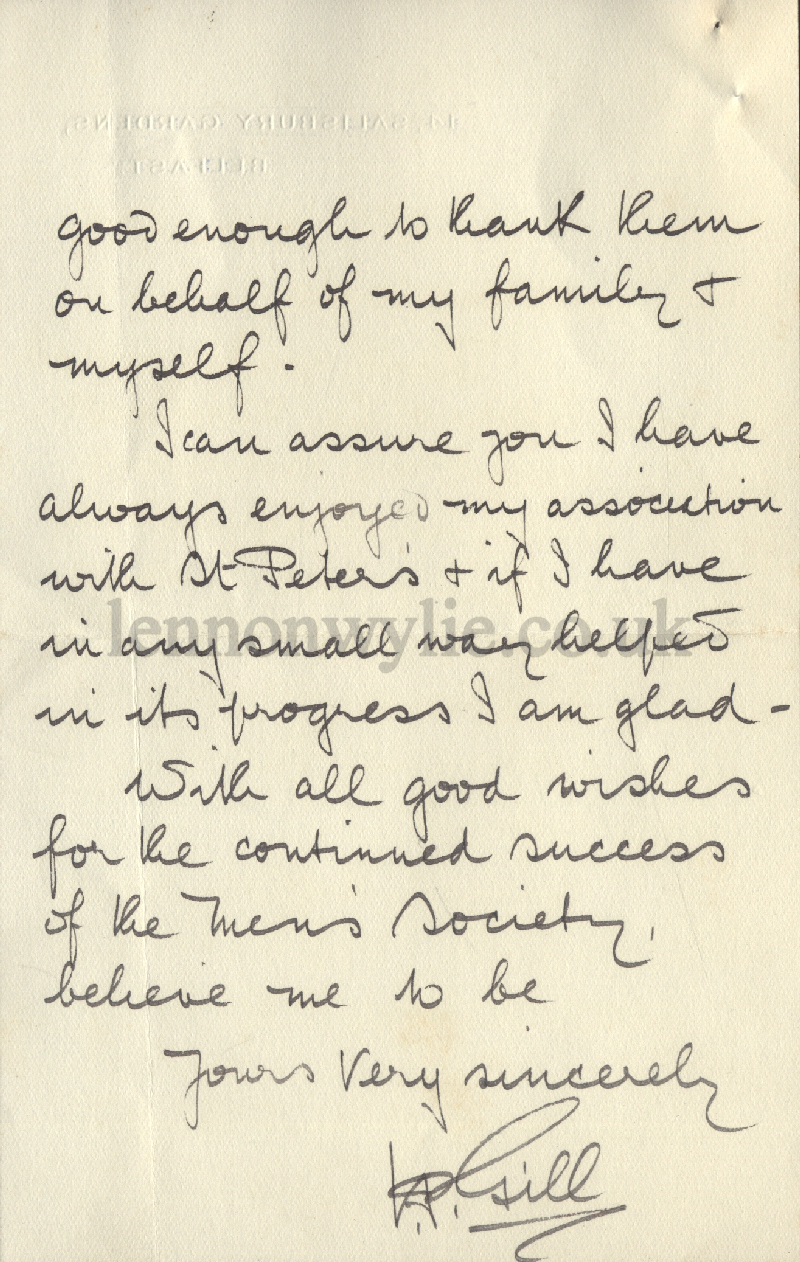 SALISBURY GARDENS,
BELFAST
good enough to thank them
on behalf of my family &
myself.
I can assure you I have
always enjoyed my association
with St Peter's & if I have
lennonwylie.co.uk
in any small way helped
in its progress I am glad -
With all good wishes
for the continued success
of the Men's Society,
believe me to be
Yours Very sincerely
Gill